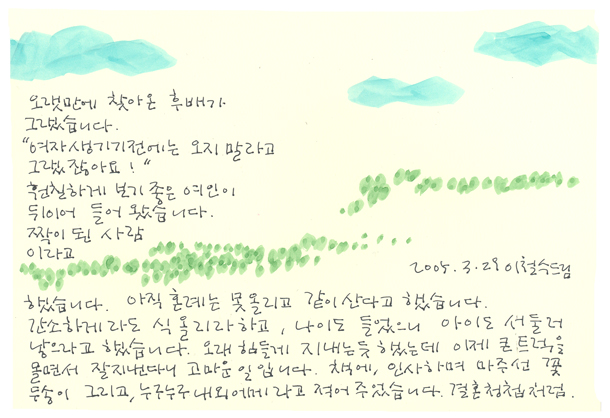 오랫만에 찾아온 후배가
그랬습니다.
"여자생기기전에는 오지 말라고
그랬잖아요!"
훤칠하게 보기 좋은 여인이
뒤이어 들어 왔습니다.
짝이 된 사람
이라고
2005.3.29 이철수드림
했습니다. 아직 혼례는 못올리고 같이산다고 했습니다.
간소하게라도 식 올리라하고, 나이도 들었으니 아이도 서둘러
낳으라고 했습니다. 오래 힘들게 지내는듯 했는데 이제 큰트럭을
몰면서 잘지낸다니 고마운 일입니다. 책에, 인사하며 마주선 꽃
두송이 그리고, 누구누구 내외에게라고 적어 주었습니다. 결혼청첩처럼.